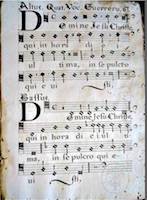 Altus. Quat. Voc. Guerrero. 61
Domine Jesu Christe
qui in hora di e i
ul ti ma, in sepulcro
qui e ui sti,
Bassus.
Domine Jesu Christe
qui in hora di e i ul ti
ma, in se pulcro qui e
ui sti,